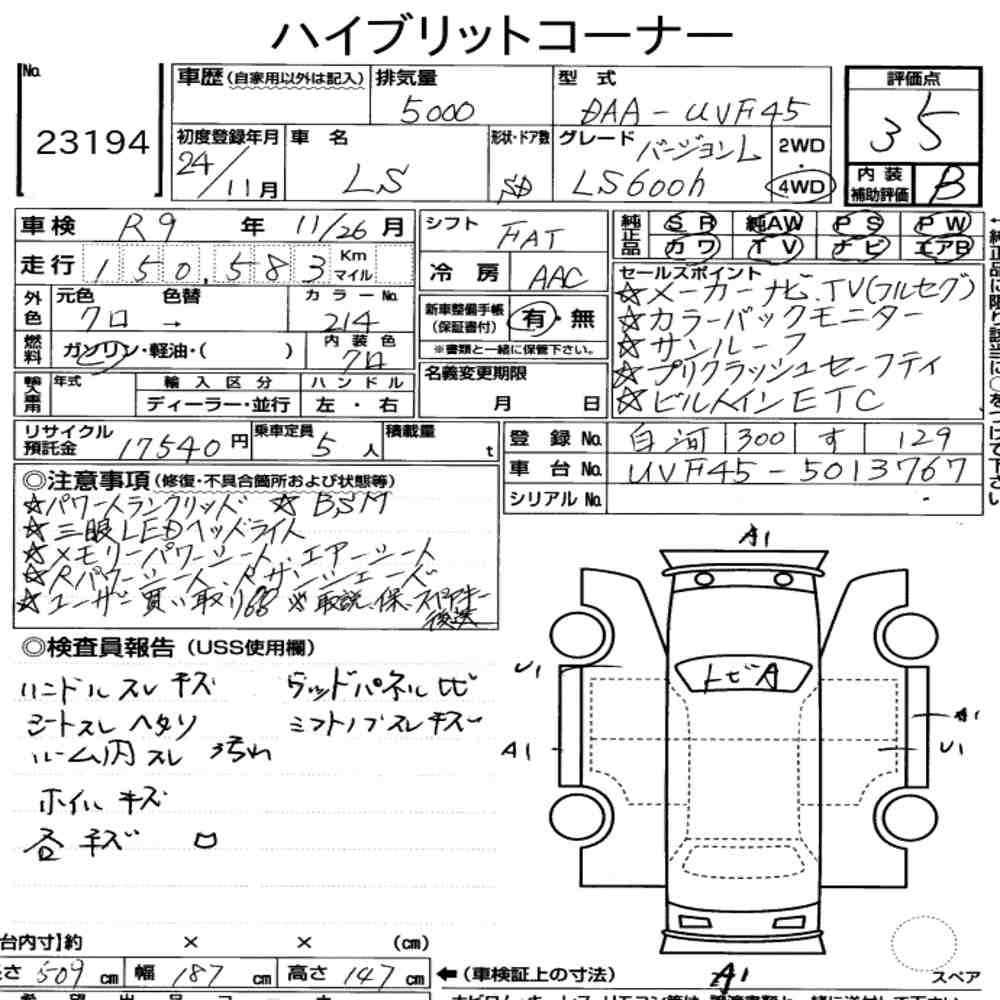 ハイブリットコーナー
No. 23194
車歴(自家用以外は記入)
排気量 5000
型式 DAA-UVF45
評価点 35
初度登録年月 24/11月
車名 LS
形状・ドア数 SD
グレード バージョンL LS600h
2WD・4WD
内装補助評価 B
車検 R9年 11/26月
シフト FAT
純正品 SR 純AW PS PW
カワ TV ナビ エアB
走行 150,583 Km マイル
冷房 AAC
セールスポイント
☆メーカーナビ.TV(フルセグ)
☆カラーバックモニター
☆サンルーフ
☆プリクラッシュセーフティ
☆ビルトインETC
外色 元色 クロ → 色替 カラーNo. 214
新車整備手帳(保証書付) 有・無
※書類と一緒に保管下さい。
燃料 ガソリン・軽油・( ) 内装色 クロ
名義変更期限 月 日
輸入車用 年式 輸入区分 ディーラー・並行 ハンドル 左・右
リサイクル預託金 17540円 乗車定員 5人 積載量 t
登録No. 白河 300 す 129
車台No. UVF45-5013767
シリアルNo.
◎注意事項(修復・不具合箇所および状態等)
☆パワートランクリッド ☆BSM
☆三眼LEDヘッドライト
☆メモリーパワーシート.エアーシート
☆Rパワーシート.Rサンシェーズ
☆ユーザー買い取り68 ※取説.保.スペアキー後送
◎検査員報告(USS使用欄)
ハンドルスレキズ ウッドパネルヒビ
シートスレヘタリ シフトノブスレキズ
ルーム内スレ 汚れ
ホイルキズ
各キズ ロ
A1
U1
トビA
A1
A1
U1
A1
スペア
台内寸】約 × × (cm)
長さ 509cm 幅 187cm 高さ 147cm
←(車検証上の寸法)